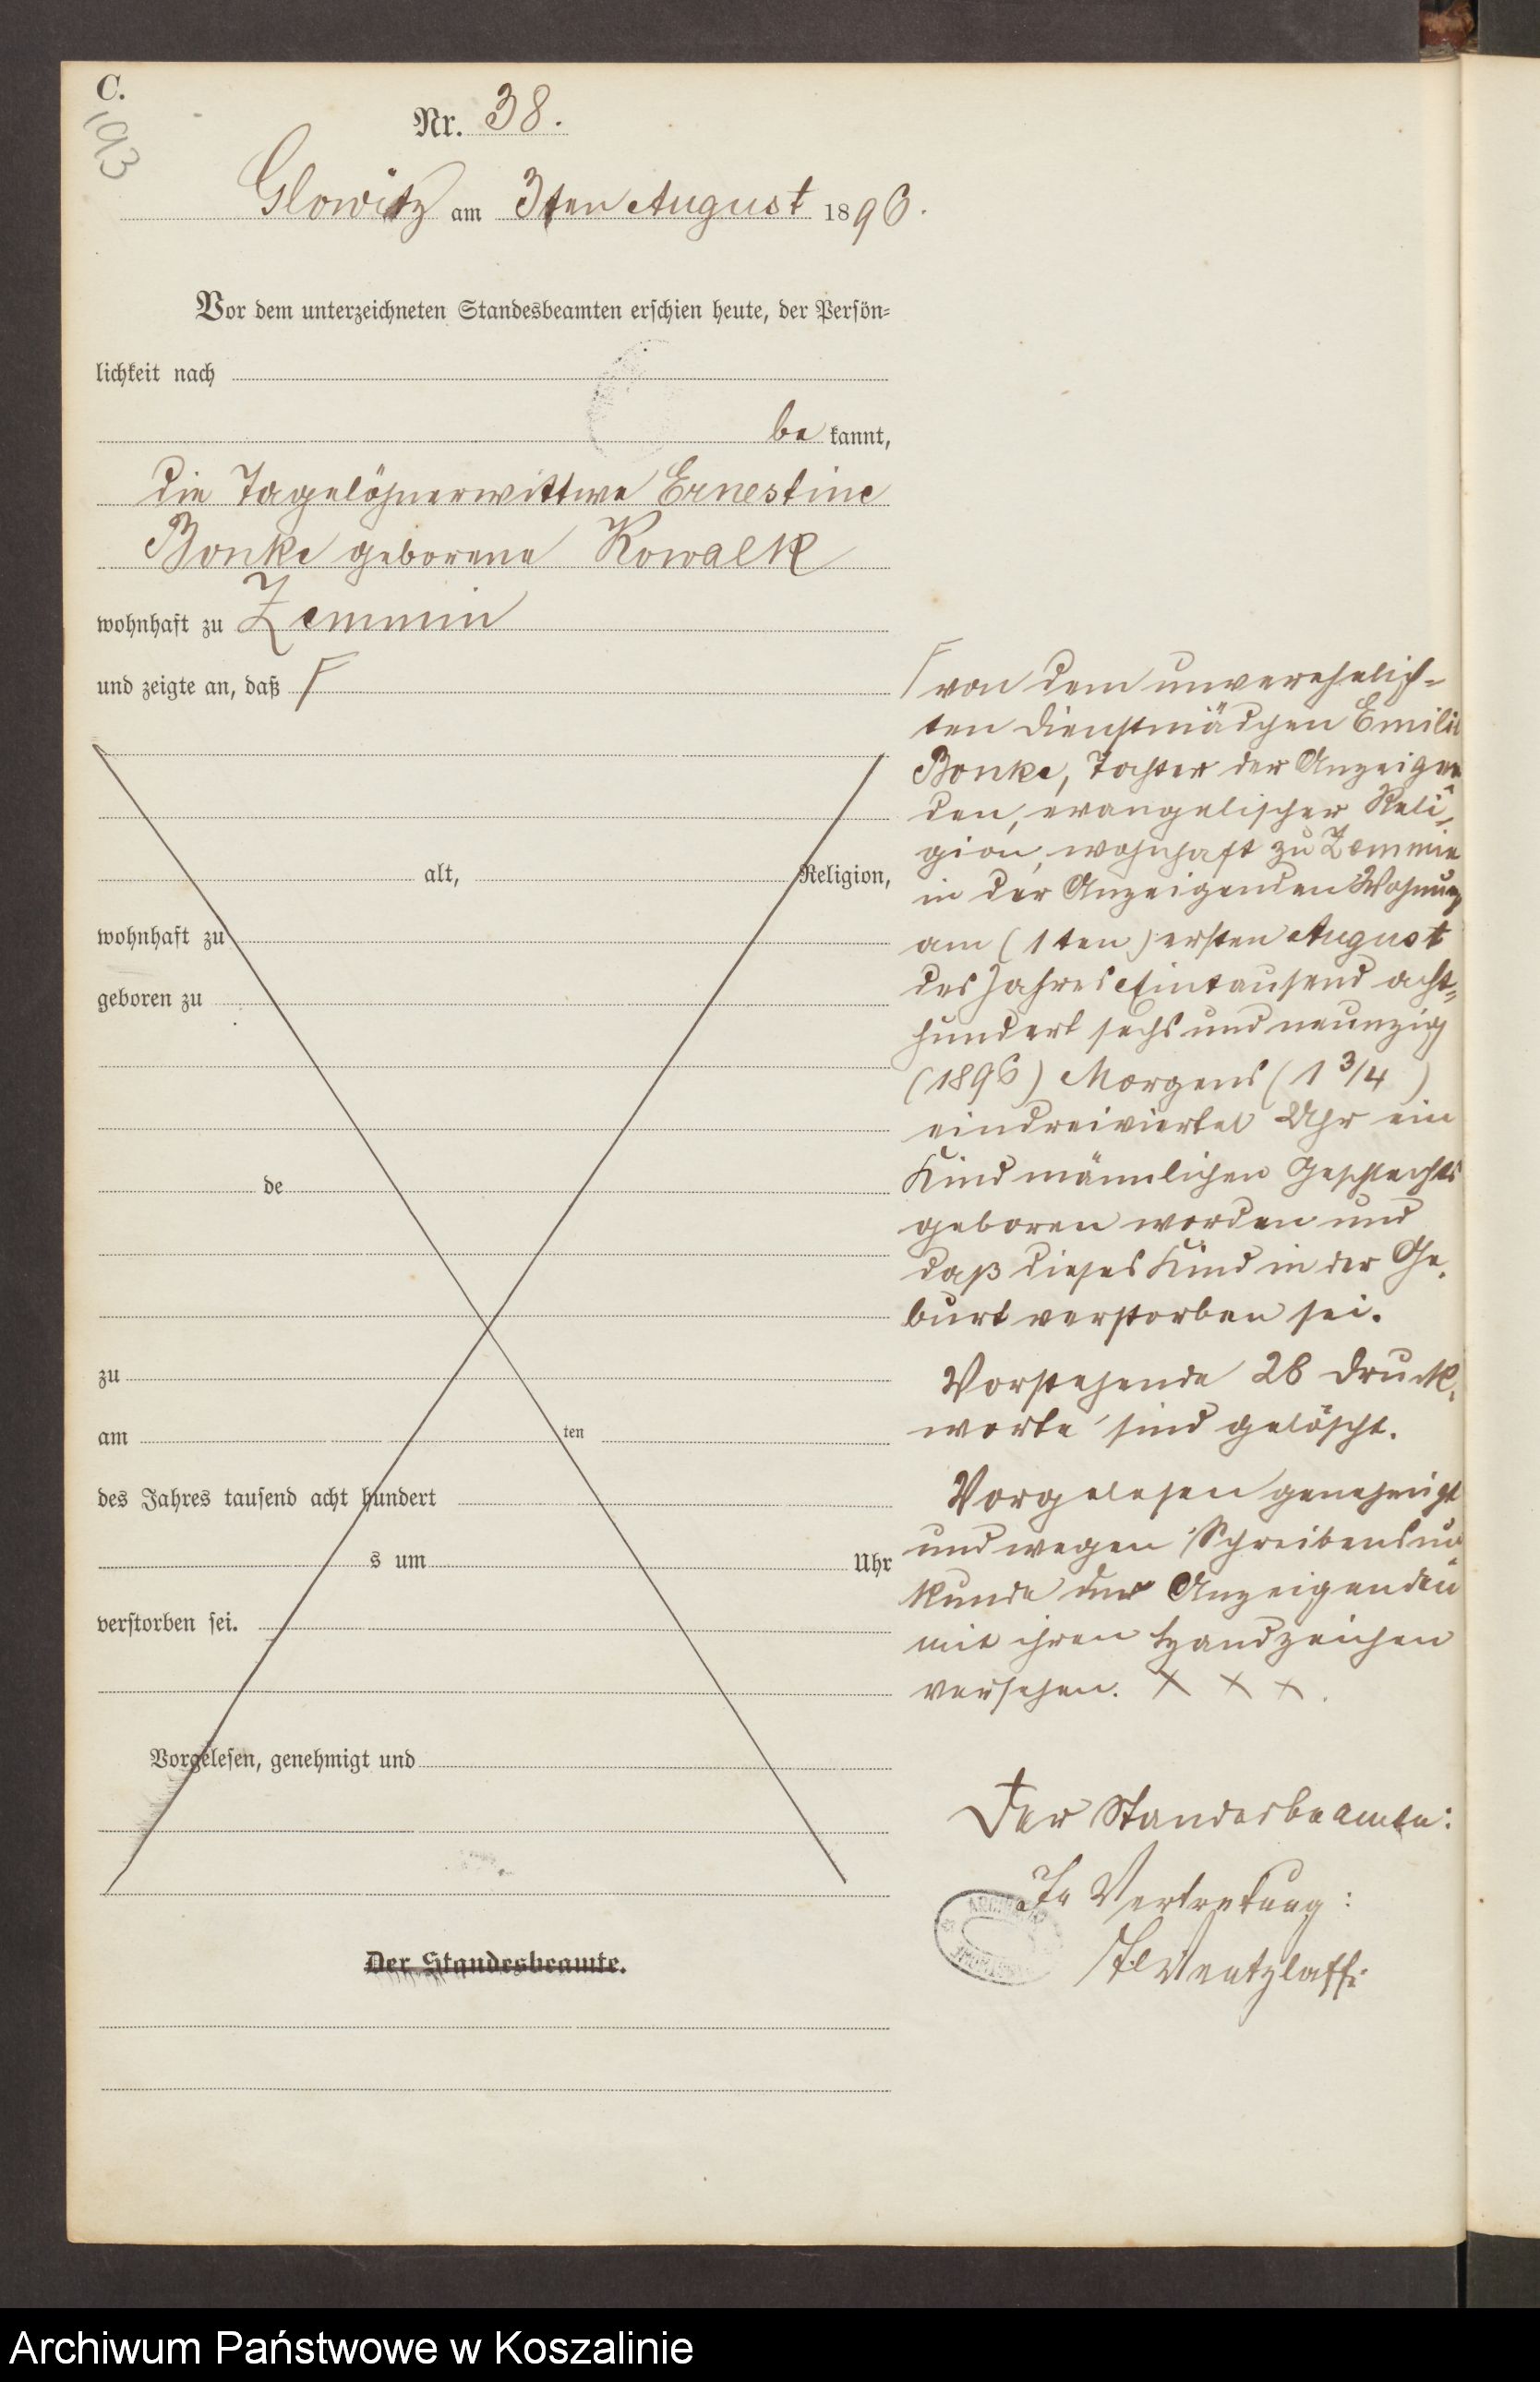 C.
193
Nr. 38.
Glowitz am 3ten August 1896.
Vor dem unterzeichneten Standesbeamten erschien heute, der Persön-
lichkeit nach
be kannt,
die Tagelöhnerwittwe Ernestine
Bonke geborene Kowalk
wohnhaft zu Zemmin
und zeigte an, daß Γ
alt, Religion,
wohnhaft zu
geboren zu
de
zu
am ten
des Jahres tausend acht hundert
s um Uhr
verstorben sei.
Vorgelesen, genehmigt und
Der Standesbeamte.
Γ von dem unverehelich-
ten Dienstmädchen Emilie
Bonke, Tochter der Anzeigen
den, evangelischer Reli-
gion, wohnhaft zu Zemmin
in der Anzeigenden Wohnung
am (1ten) ersten August
des Jahres Eintausend acht-
hundert sechs und neunzig
(1896) Morgens (1 3/4)
eindreiviertel Uhr ein
Kind männlichen Geschlechts
geboren worden und
daß dieses Kind in der Ge-
burt verstorben sei.
Vorstehende 28 Druck-
worte sind gelöscht.
Vorgelesen genehmigt
und wegen Schreibensun
kunde der Anzeigenden
mit ihren Handzeichen
versehen. X X X.
Der Standesbeamte:
In Vertretung:
Wentzlaff.
Archiwum Państwowe w Koszalinie